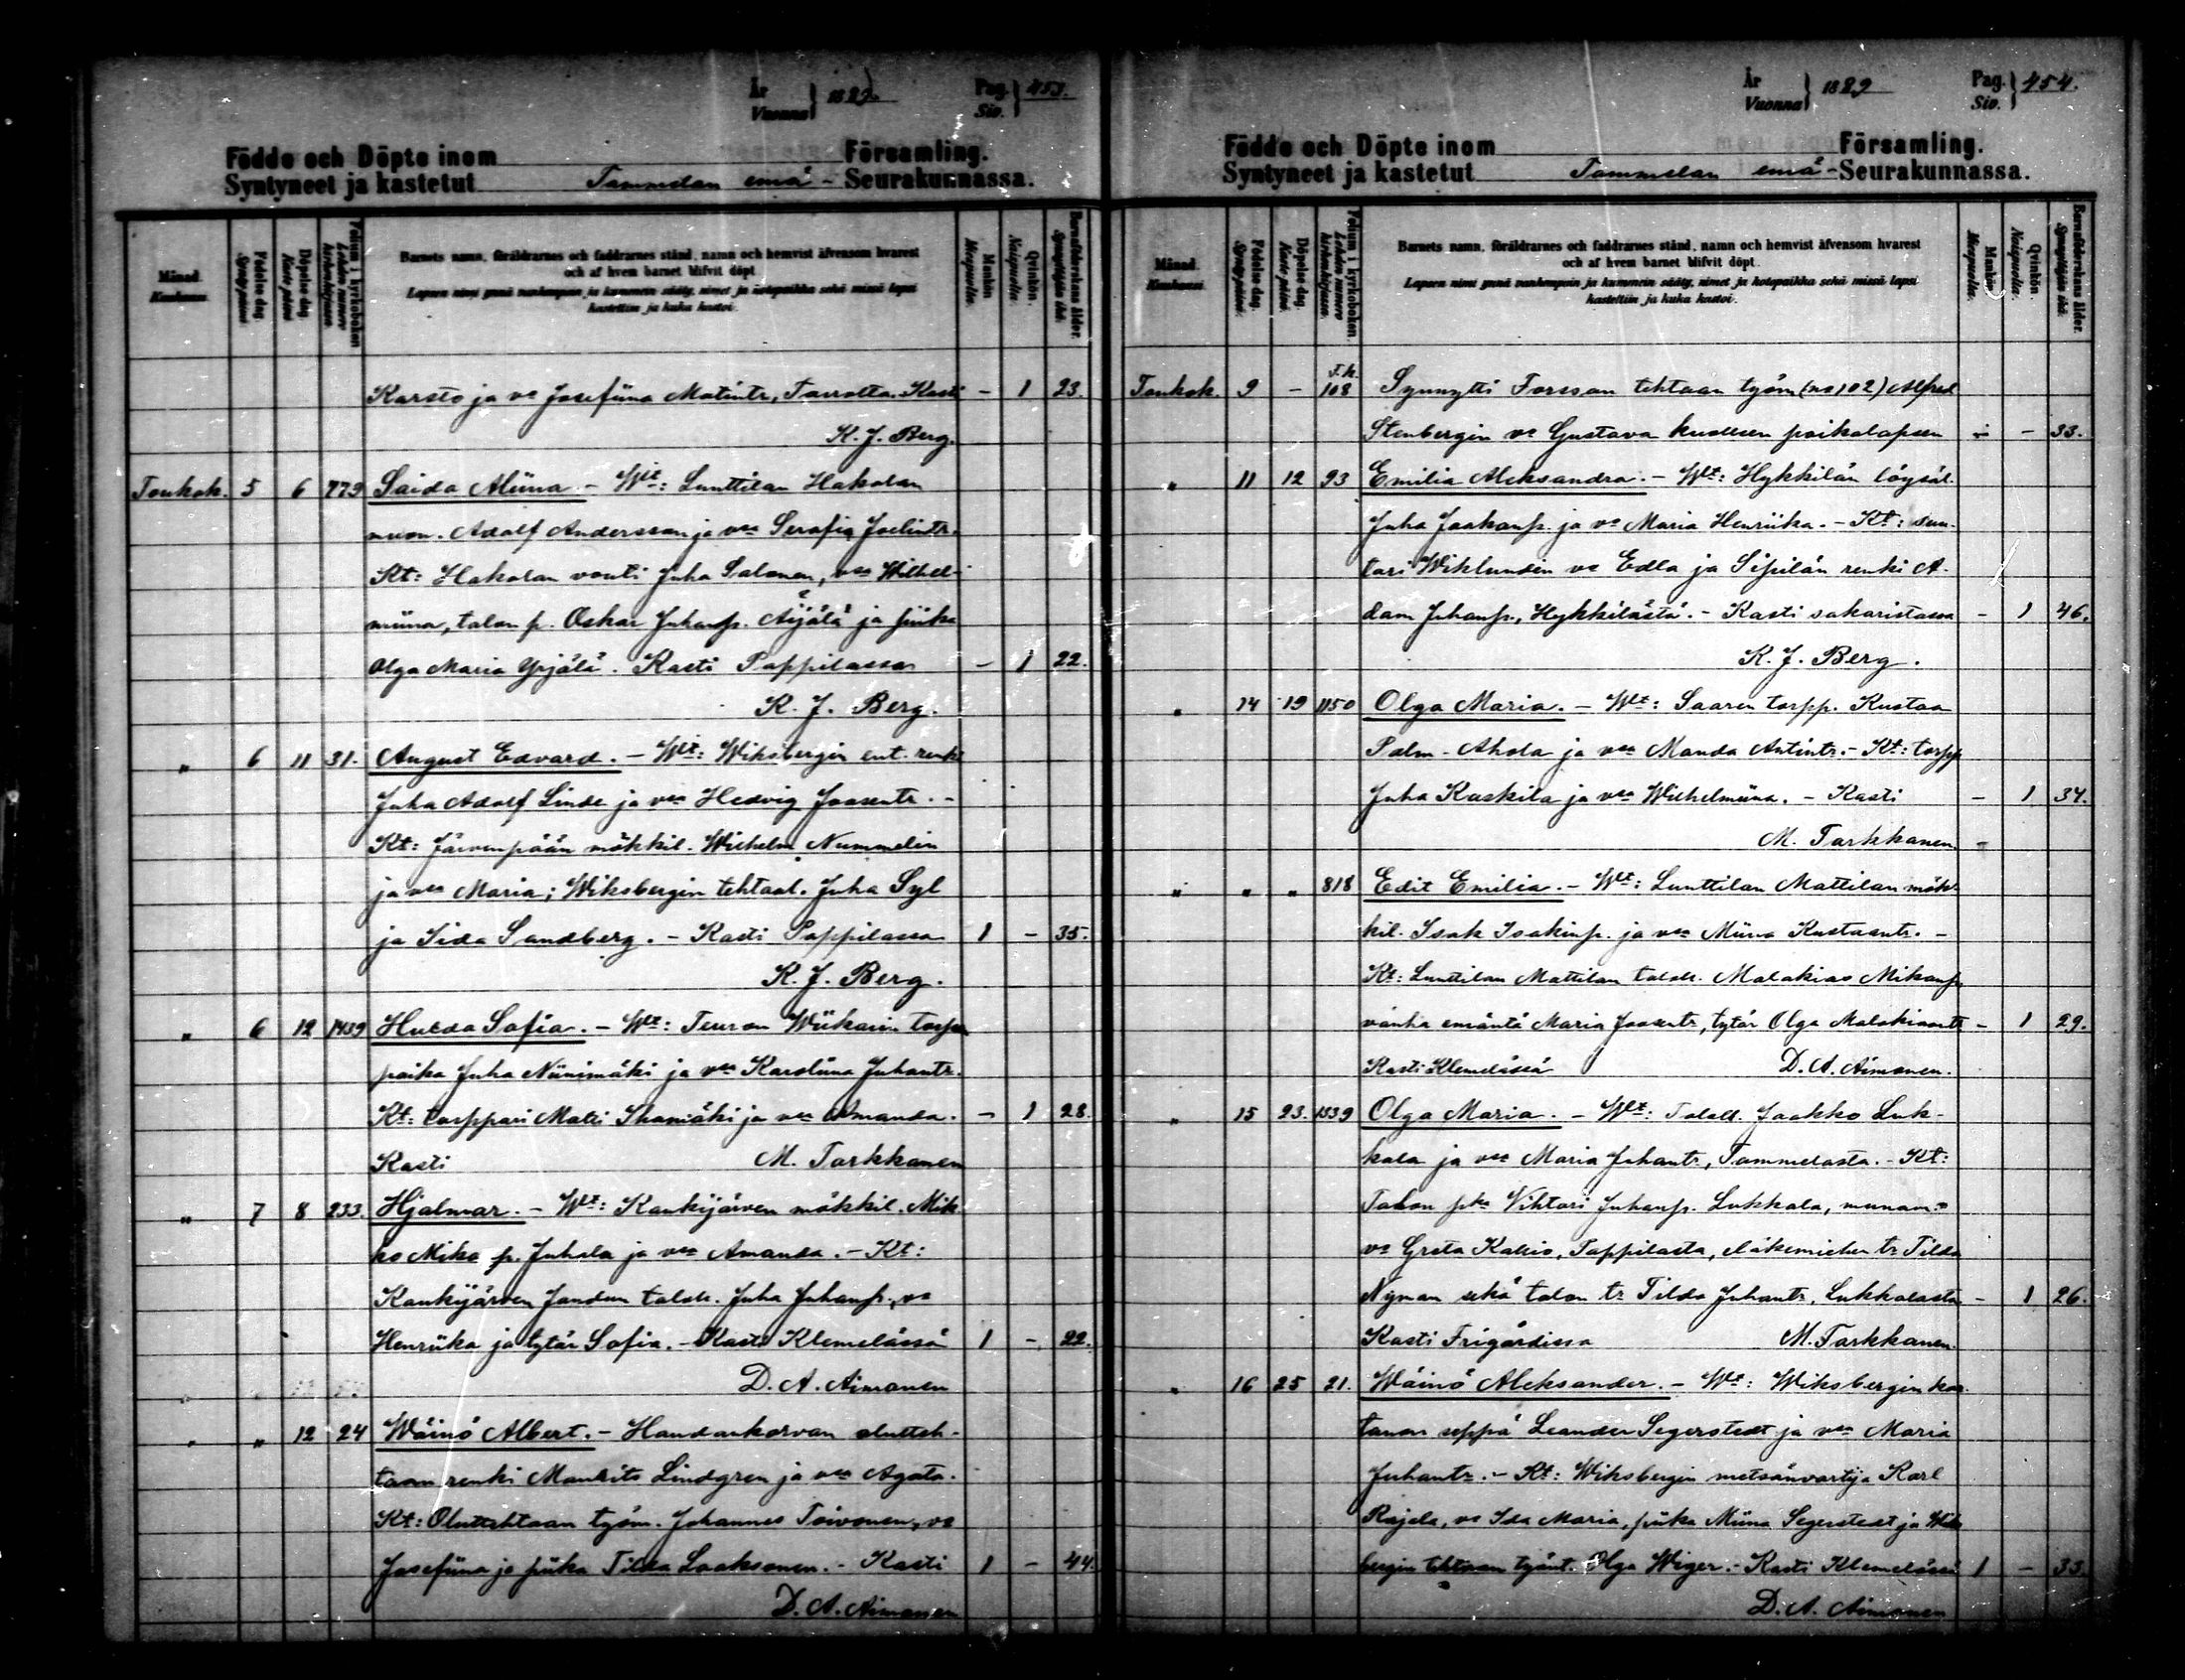 År
Vuonna } 1889. Pag. Siv. } 453.
Födde och Döpte inom Församling.
Syntyneet ja kastetut Tammelan emä - Seurakunnassa.
Månad. Kuukausi. Födelse dag. Synty päivä Döpelse dag. Kaste päivä Folium i kyrkoboken Lehden numero kirkonkirjassa. Barnets namn, föräldrarnes och faddrarnes stånd, namn och hemvist äfvensom hvarest Mankön Miespuolta. Qvinkön. Naispuolta. Barnaföderskans ålder. Synnyttäjän ikä.
och af hvem barnet blifvit döpt.
Lapsen nimi ynnä vanhempain ja kummein sääty, nimet ja kotopaikka sekä missä lapsi
kastettiin ja kuka kastoi.
Karsto ja vo Josefiina Matintr, Kasti - 1 23.
K. J. Berg.
Toukok. 5 6 779 Saida Aliina. - Wt: Lunttilan Hakolan
muon. Adolf Andersson ja vaa Serafia Joelintr.
Kt: Hakolan vouti Juha Salonen, vaa Wilhel-
miina, talon p. Oskar Juhanp. Äijälä ja piika
Olga Maria Ypjälä. Kasti Pappilassa - 1 22.
K. J. Berg.
" 6 11 31. August Edvard. - Wt: Wiksbergin ent. renki
Juha Adolf Linde ja vaa Hedvig Joosentr. -
Kt: Järvenpään mökkil. Wilhelm Nummelin
ja vaa Maria; Wiksbergin tehtaal. Juha Syl
ja Iida Sandberg. - Kasti Pappilassa 1 - 35.
K. J. Berg.
" 6 12 1439 Hulda Sofia. - Wt: Teuron Wiikarin torpan
poika Juha Niinimäki ja vaa Karoliina Juhantr.
Kt: torppari Matti ja vaa Amanda. - 1 28.
Kasti M. Tarkkanen
" 7 8 233. Hjalmar. - Wt: Kaukijärven mökkil. Mik
ko Mika p. Juhala ja vaa Amanda. - Kt:
Kaukijärven taloll. Juha Juhanp., vo
Henriika ja tytär Sofia. - Kasti Klemelässä 1 - 22.
D. A. Aimonen
" " 12 24 Wäinö Albert. - Haudankorvan olutteh-
taan renki Maurits Lindgren ja vaa Agata.
Kt: Oluttehtaan työm. Johannes Toivonen, vo
Josefiina ja piika Tilda Laaksonen. - Kasti 1 - 44.
D. A. Aimonen
År
Vuonna } 1889 Pag. Siv. } 454.
Födde och Döpte inom Församling.
Syntyneet ja kastetut Tammelan emä - Seurakunnassa.
Månad. Kuukausi. Födelse dag. Synty päivä. Döpelse dag. Kaste päivä. Folium i kyrkoboken. Lehden numero kirkonkirjassa. Barnets namn, föräldrarnes och faddrarnes stånd, namn och hemvist äfvensom hvarest Mankön Miespuolta. Qvinkön. Naispuolta. Barnaföderskans ålder. Synnyttäjän ikä.
och af hvem barnet blifvit döpt.
Lapsen nimi ynnä vanhempain ja kummein sääty, nimet ja kotopaikka sekä missä lapsi
kastettiin ja kuka kastoi.
Toukok. 9 - T.k. 108 Synnytti Forssan tehtaan työm (no 102) Alfred
Stenbergin vo Gustava kuolleen poikalapsen - - 33.
" 11 12 93 Emilia Aleksandra. - Wt: Hykkilän löysäl.
Juha Jaakonp. ja vo Maria Henriika. - Kt: sun-
tari Wiklundin vo Edla ja Sipilän renki A-
dam Juhanp., Hykkilästä. - Kasti sakaristassa - 1 46.
K. J. Berg.
" 14 19 1150 Olga Maria. - Wt: Saaren torpp. Kustaa
Palm-Ahola ja vaa Manda Antintr. - Kt: torpp
Juha Kaskila ja vaa Wilhelmiina. - Kasti - 1 34.
M. Tarkkanen. -
" " " 818 Edit Emilia. - Wt: Lunttilan Mattilan mök-
kil. Isak Isakinp. ja vaa Miina Kustaantr. -
Kt: Lunttilan Mattilan taloll. Malakias Mikanp
vanha emäntä Maria Joosentr, tytär Olga Malakiaantr - 1 29.
Kasti Klemelässä D. A. Aimonen.
" 15 23. 1339 Olga Maria. - Wt: Taloll. Jaakko Luk-
kala ja vaa Maria Juhantr, Tammelasta. - Kt:
Talon pka Vihtori Juhanp. Lukkala, munam:o
vo Greta Kallio, Pappilasta, eläkemiehen tr Tilda
Nyman sekä talon tr Tilda Juhantr, Lukkalasta - 1 26.
Kasti Frigårdissa M. Tarkkanen.
" 16 25 21. Wäinö Aleksander. - Wt: Wiksbergin kar-
tanon seppä Leander Segerstedt ja vaa Maria
Juhantr. - Kt: Wiksbergin metsänvartija Karl
Rajala, vo Ida Maria, piika Miina Segerstedt ja Wiks
bergin tehtaan työnt. Olga Wiger. - Kasti Klemelässä 1 - 33.
D. A. Aimonen